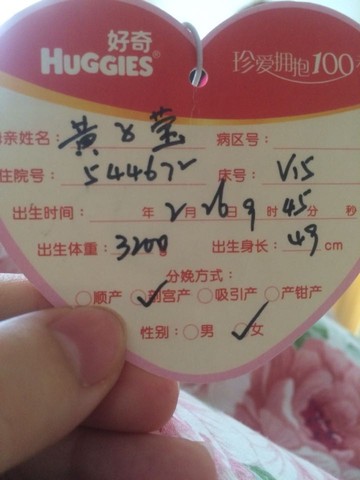 好奇
HUGGIES® 珍爱拥抱100
亲姓名: 黄 莹 病区号:
住院号: 544672 床号: V15
出生时间: 年 2 月 26 9 45 分 秒
出生体重: 3200g 出生身长: 49 cm
分娩方式:
○顺产 ✓剖宫产 ○吸引产 ○产钳产
性别: ○男 ✓女